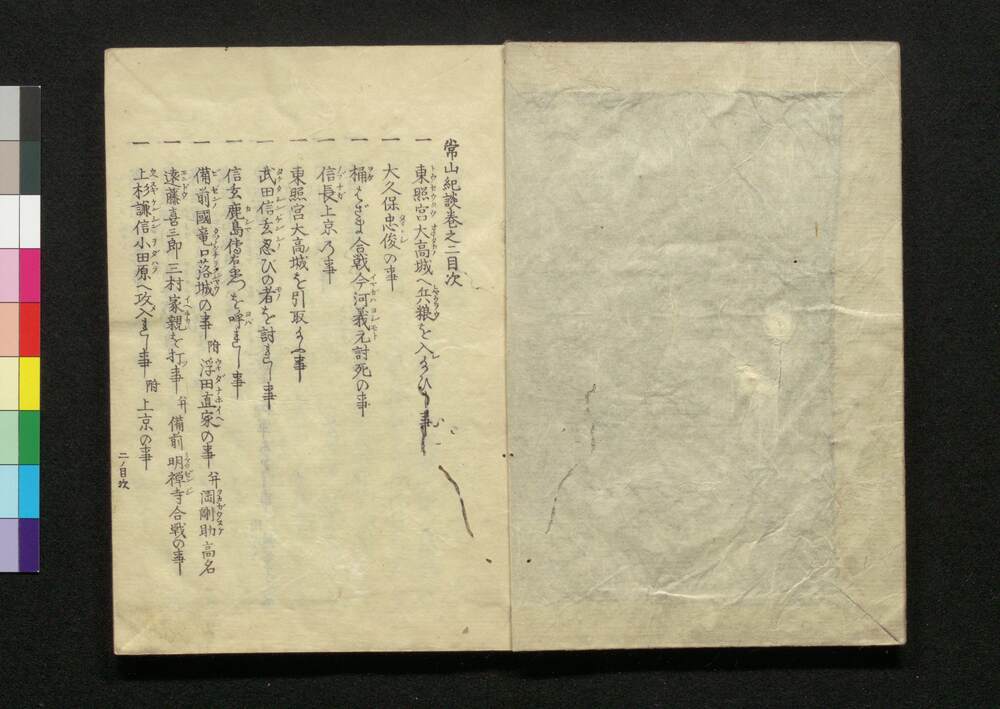 常山紀談巻之二目次
一 東照宮大高城へ兵粮を入給ひし事
一 大久保忠俊の事
一 桶はざま合戦今河義元討死の事
一 信長上京の事
一 東照宮大高城を引取給ふ事
一 武田信玄忍びの者を討れし事
一 信玄鹿島傳左衛門を呼れし事
一 備前國竜口落城の事 附 浮田直家の事 并 岡剛助高名
一 遠藤喜三郎三村家親を打事 并 備前明禅寺合戦の事
一 上杉謙信小田原へ攻入れし事 附 上京の事
二ノ目次